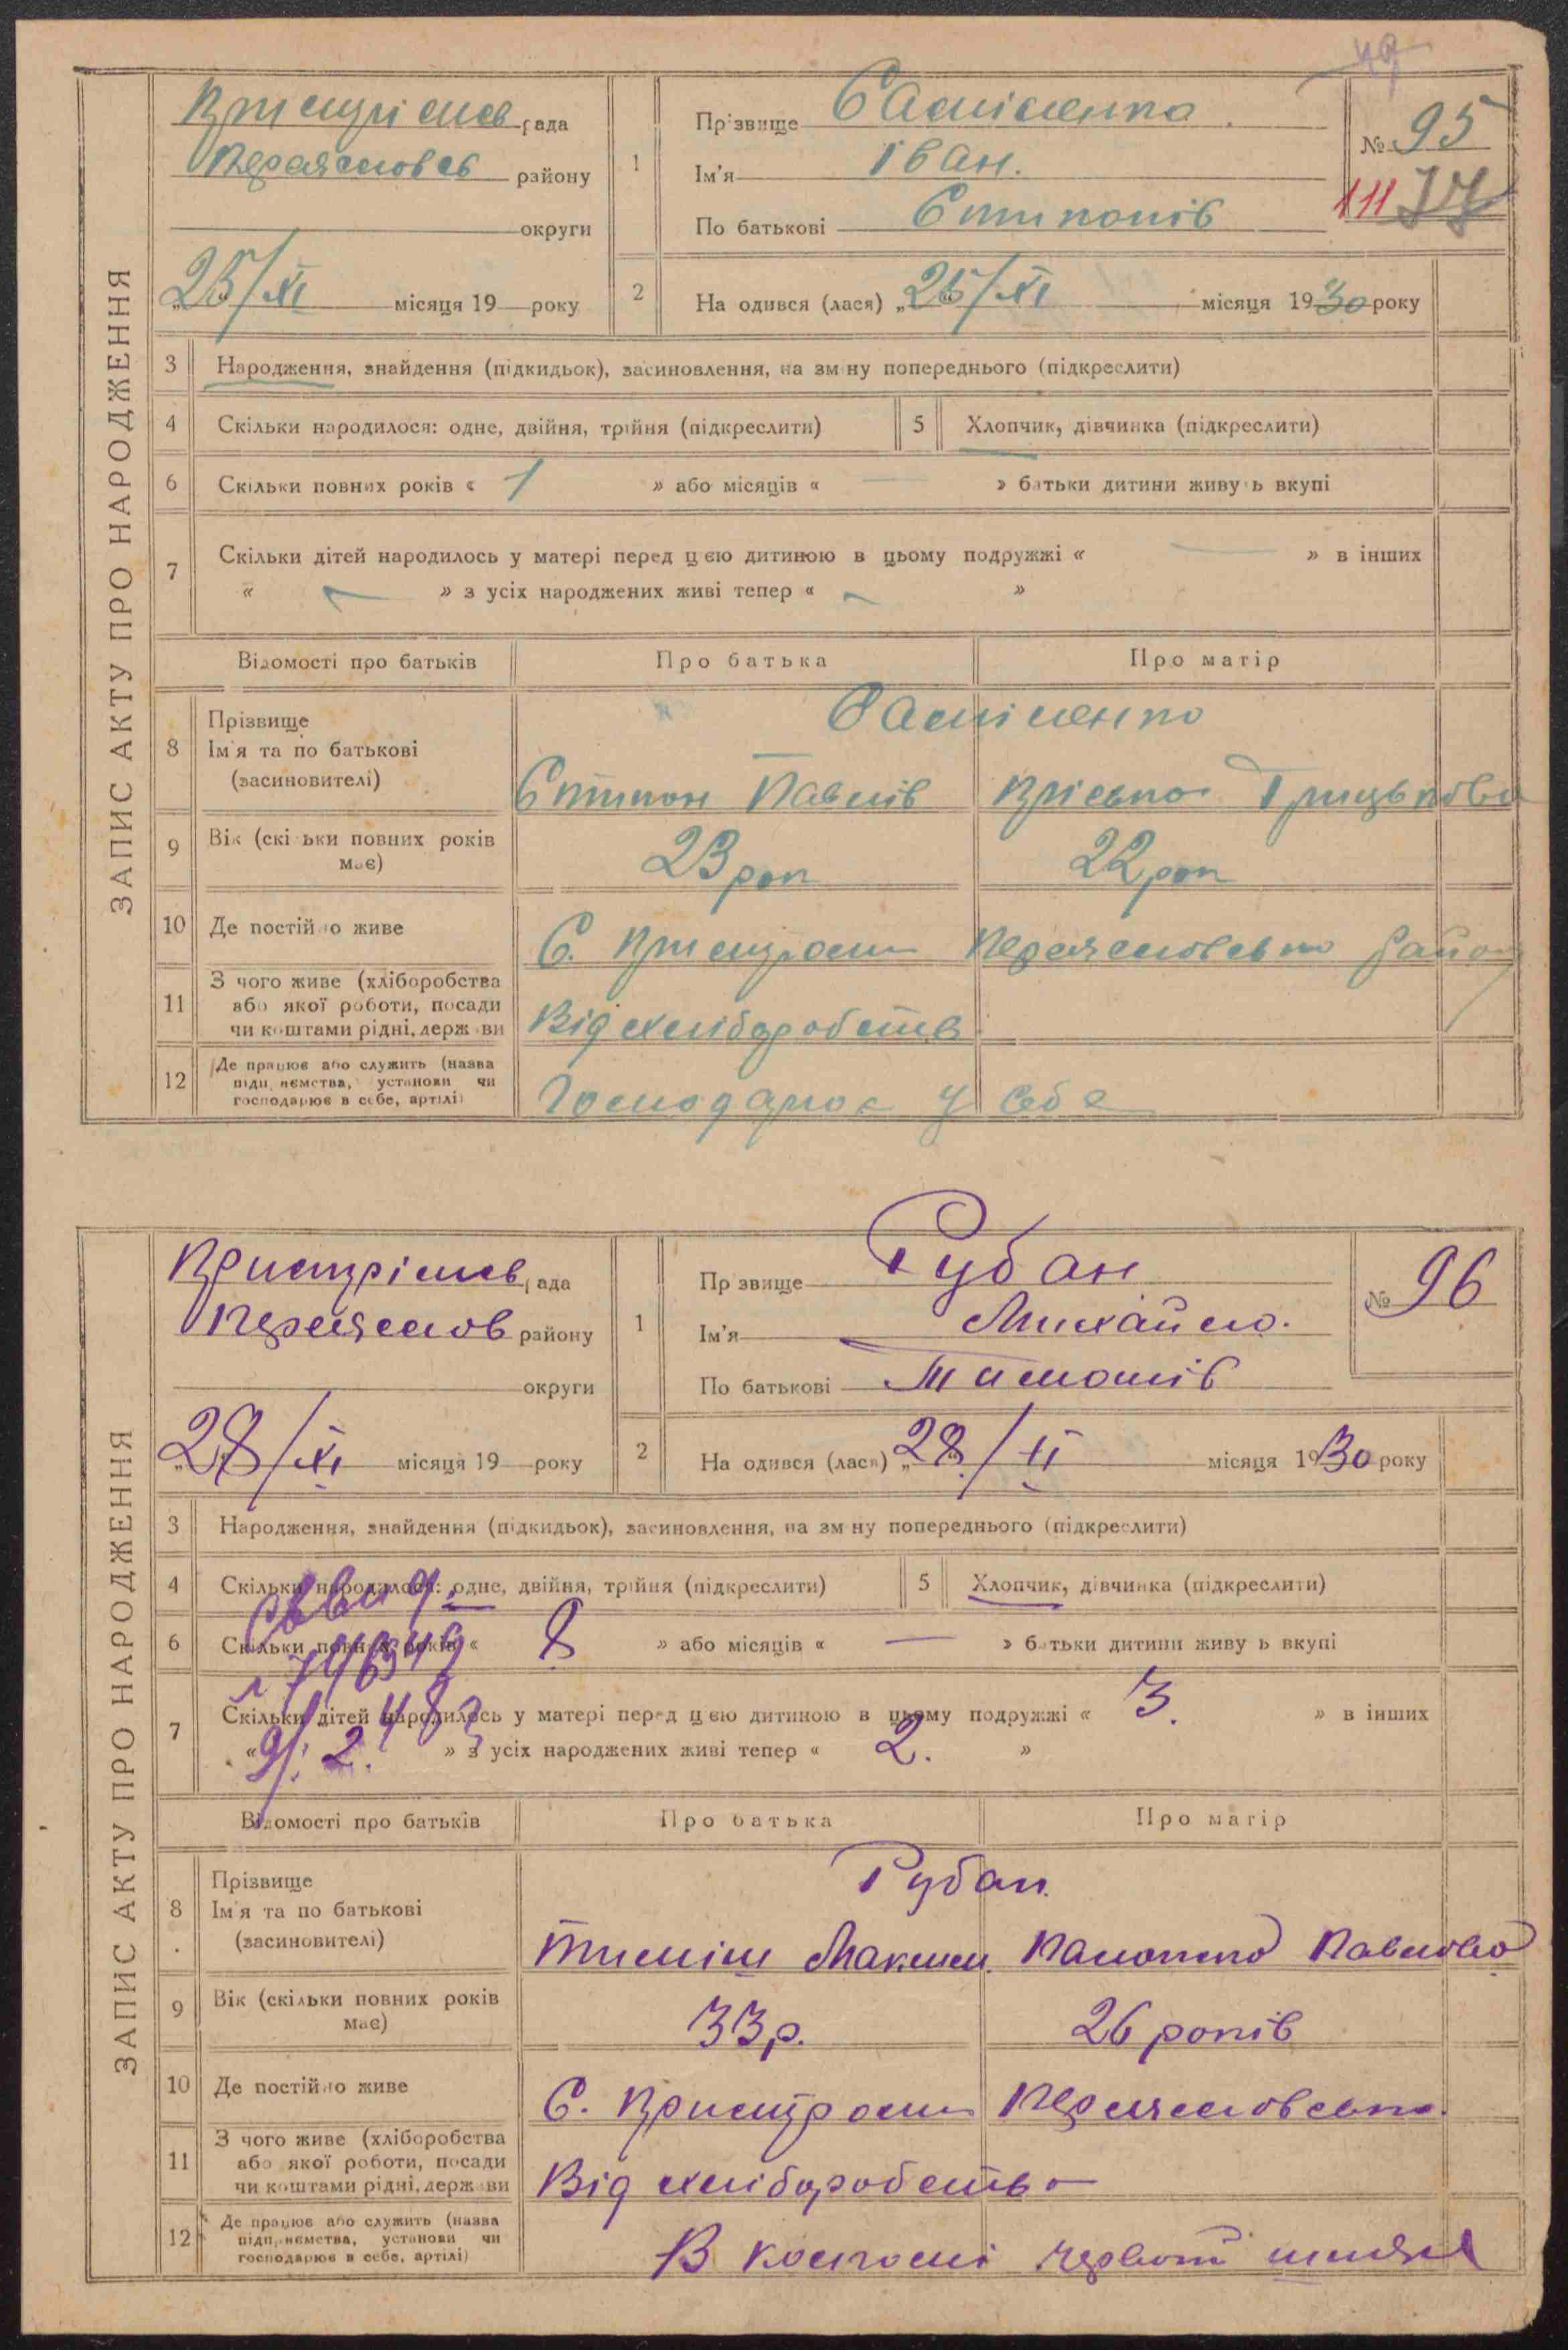 49
ЗАПИС АКТУ ПРО НАРОДЖЕННЯ
Пристрілсь рада
району
округи
25/XI місяця 19 року
1
Прізвище
Ім'я Іван.
По батькові Степанів
№ 95
111
2
На одився (лася) „25/XI місяця 1930 року
3 Народження, знайдення (підкидьок), засиновлення, на зм ну попереднього (підкреслити)
4 Скільки народилося: одне, двійня, трійня (підкреслити) 5 Хлопчик, дівчинка (підкреслити)
6 Скільки повних років « 1 » або місяців « — » батьки дитини живу ь вкупі
7 Скільки дітей народилось у матері перед цєю дитиною в цьому подружжі « — » в інших
« — » з усіх народжених живі тепер « — »
Відомості про батьків Про батька Про матір
8 Прізвище
Ім'я та по батькові
(засиновителі)
Степан Павлів Грицькова
9 Вік (скі ьки повних років має) 23 рок 22 рок
10 Де постійно живе С. Пристроми район
11 З чого живе (хліборобства
або якої роботи, посади
чи коштами рідні, держави Від хліборобств
12 Де працює або служить (назва
підприємства, установи чи
господарює в себе, артілі) Господарює у себе
ЗАПИС АКТУ ПРО НАРОДЖЕННЯ
рада
району
округи
28/XI місяця 19 року
1
Прізвище Рубан
Ім'я Михайло.
По батькові Тимошів
№ 96
2
На одився (лася) „28/II місяця 1930 року
3 Народження, знайдення (підкидьок), засиновлення, на зм ну попереднього (підкреслити)
4 Скільки народилося: одне, двійня, трійня (підкреслити) 5 Хлопчик, дівчинка (підкреслити)
6 Скільки повних років « 8 » або місяців « — » батьки дитини живу ь вкупі
7 Скільки дітей народилось у матері перед цєю дитиною в цьому подружжі « 3. » в інших
« » з усіх народжених живі тепер « 2. »
Відомості про батьків Про батька Про матір
8 Прізвище
Ім'я та по батькові
(засиновителі)
Рубан.
Тиміш Максим. Павлова
9 Вік (скільки повних років має) 33 р. 26 років
10 Де постійно живе С. Пристроми
11 З чого живе (хліборобства
або якої роботи, посади
чи коштами рідні, держави Від хліборобства
12 Де працює або служить (назва
підприємства, установи чи
господарює в себе, артілі) В колгоспі червоний шлях